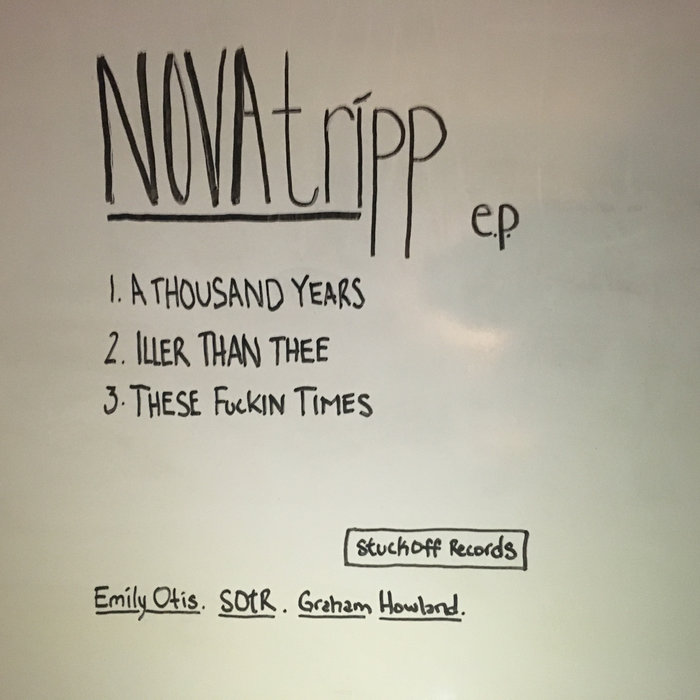 NOVAtripp
e.p.
1. A THOUSAND YEARS
2. ILLER THAN THEE
3. THESE FuckIN TIMES
Stuckoff Records
Emily Otis. SOtR. Graham Howland.